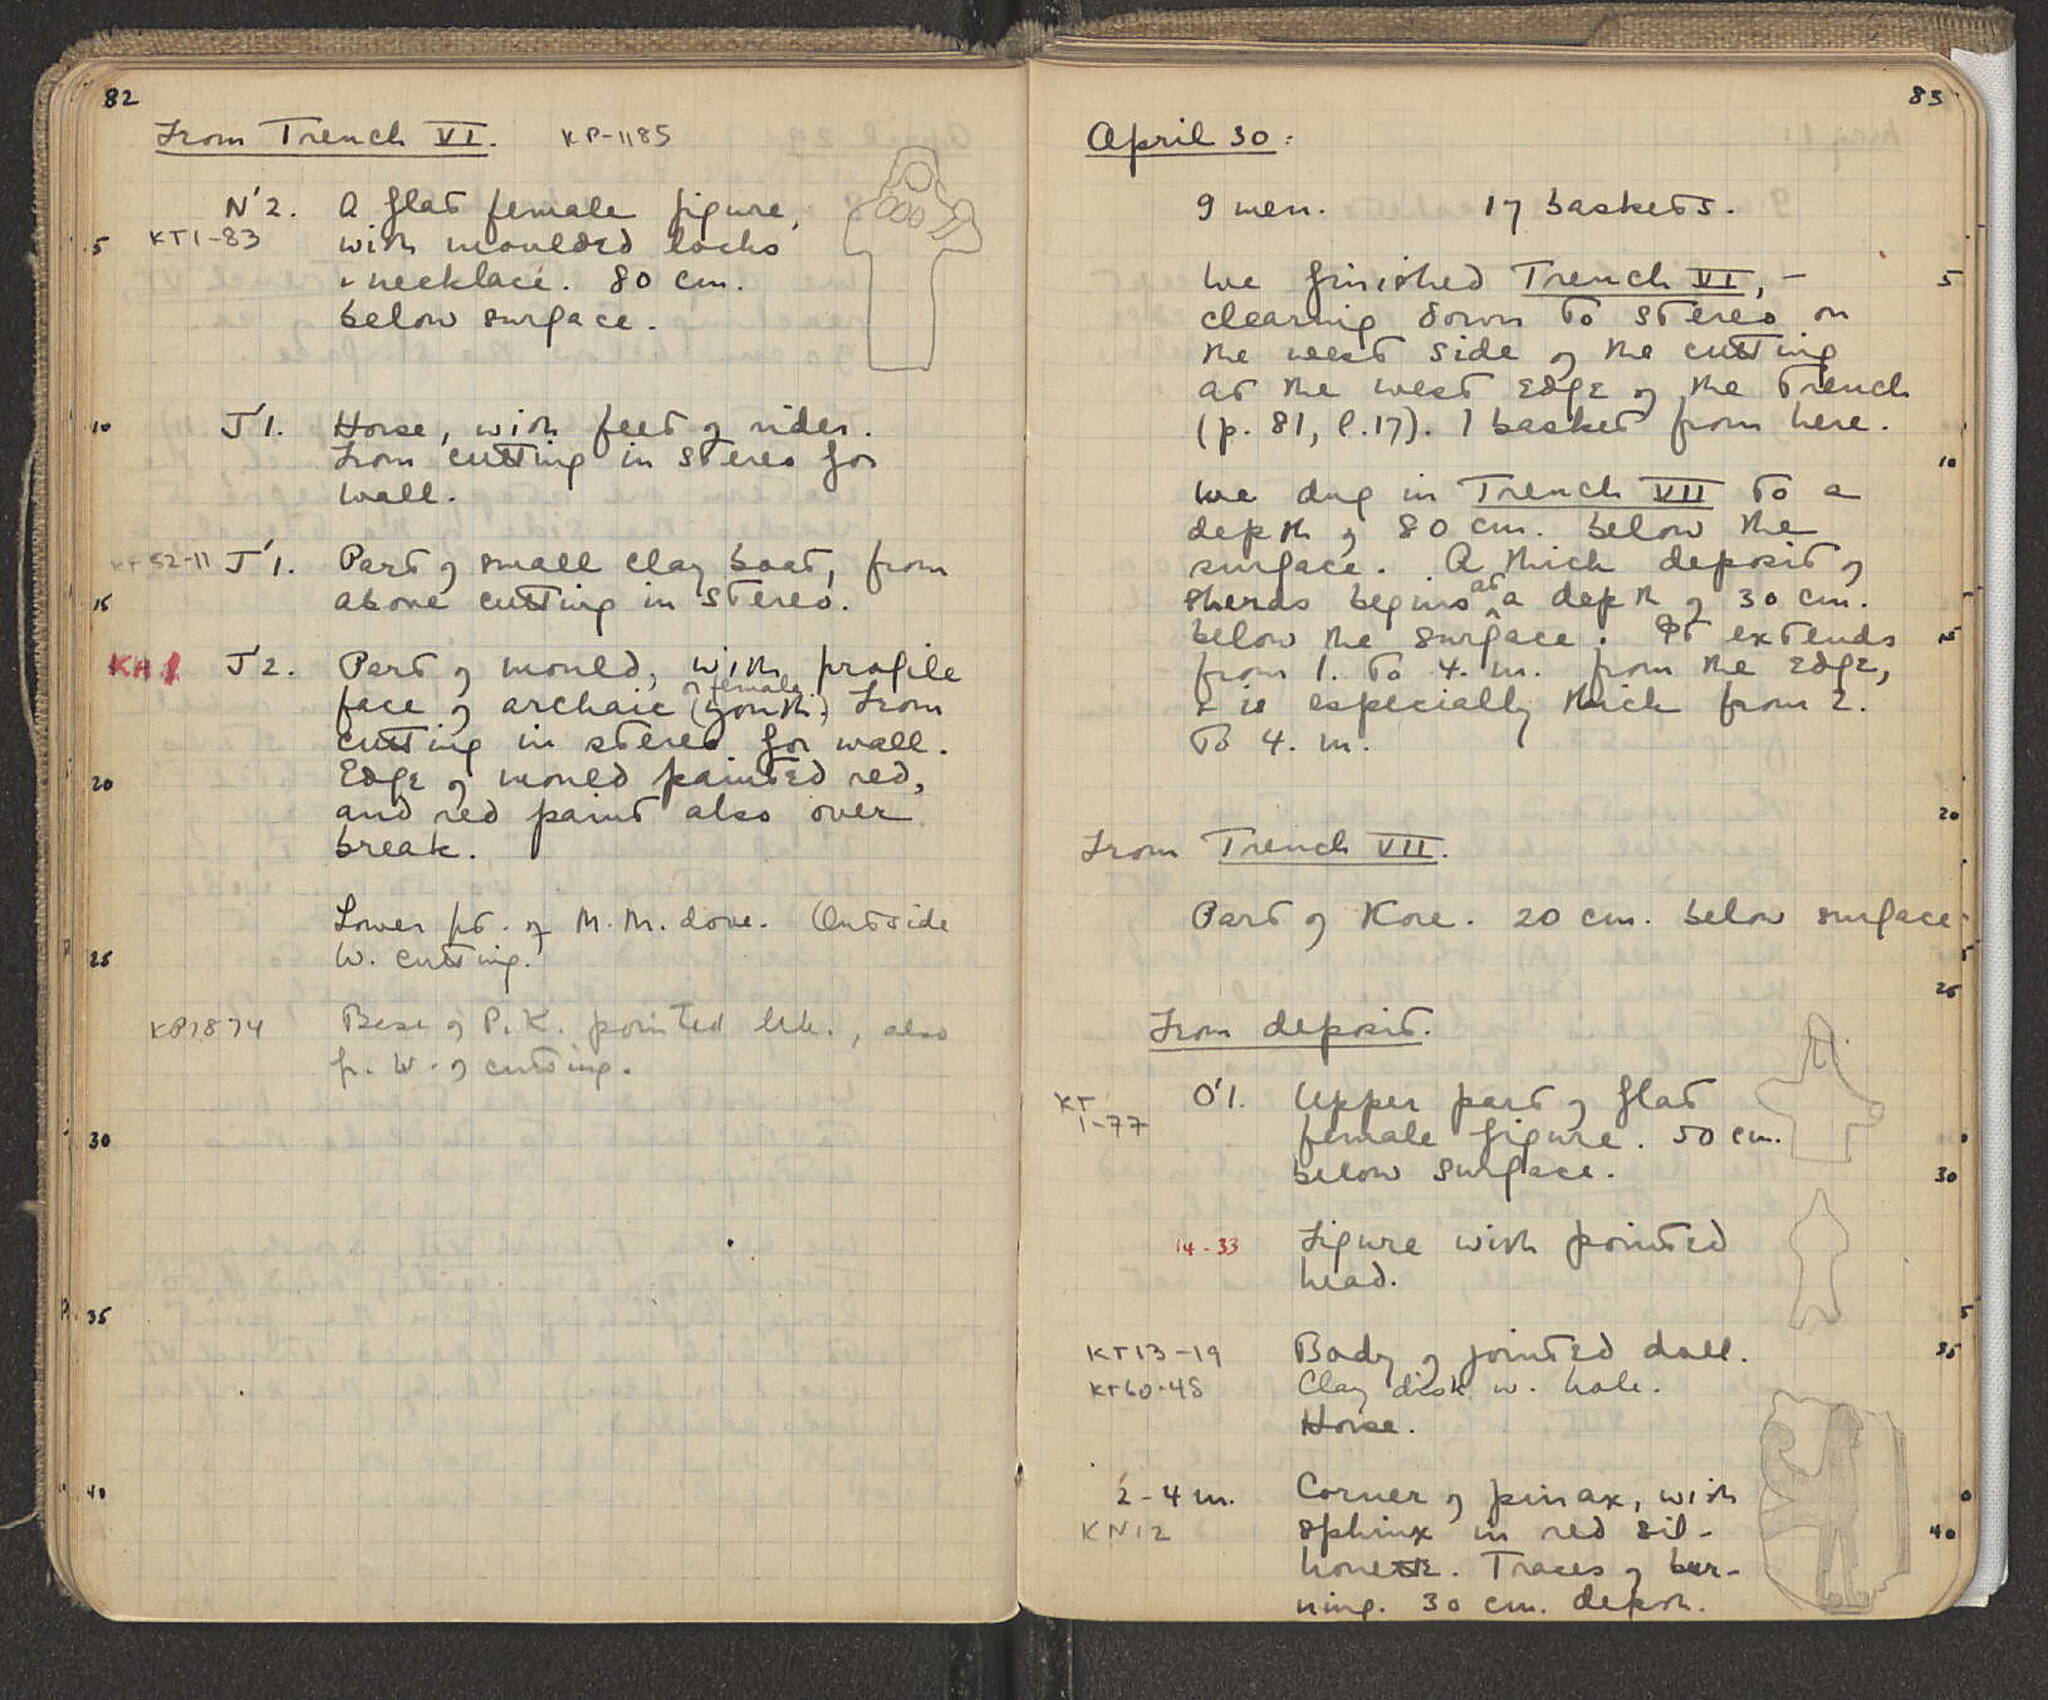 82
From Trench VI. KP-1185
N'2. A flat female figure,
KT1-83 with moulded locks
5
+ necklace. 80 cm.
below surface.
10 J'1. Horse, with feet of rider.
From cutting in stereo for
wall.
KT52-11 J'1. Part of small clay boat, from
15 above cutting in stereo.
KH1 J'2. Part of mould, with profile
face of archaic (youth.) From
or female
cutting in stereo for wall.
20 Edge of mould painted red,
and red paint also over
break.
Lower pt. of M.M. dove. Outside
25 W. cutting.
KP1874 Base of P.K. pointed lek., also
fr. W. of cutting.
30
35
40
83
April 30:
9 men. 17 baskets.
We finished Trench VI, – 5
clearing down to stereo on
the west side of the cutting
at the west edge of the trench
(p. 81, l.17). 1 basket from here.
10
We dug in Trench VII to a
depth of 80 cm. below the
surface. A thick deposit of
sherds begins at a depth of 30 cm.
below the surface. It extends 15
from 1. to 4. m. from the edge,
+ is especially thick from 2.
to 4. m.
20
From Trench VII.
Part of Kore. 20 cm. below surface.
25
From deposit.
KT 1-77 O'1. Upper part of flat
female figure. 50 cm.
below surface. 30
14-33 Figure with pointed
head.
KT13-19 Body of jointed doll. 35
KT60-48 Clay disk w. hole.
Horse.
2-4 m. Corner of pinax, with
KN12 sphinx in red sil- 40
houette. Traces of bur-
ning. 30 cm. depth.